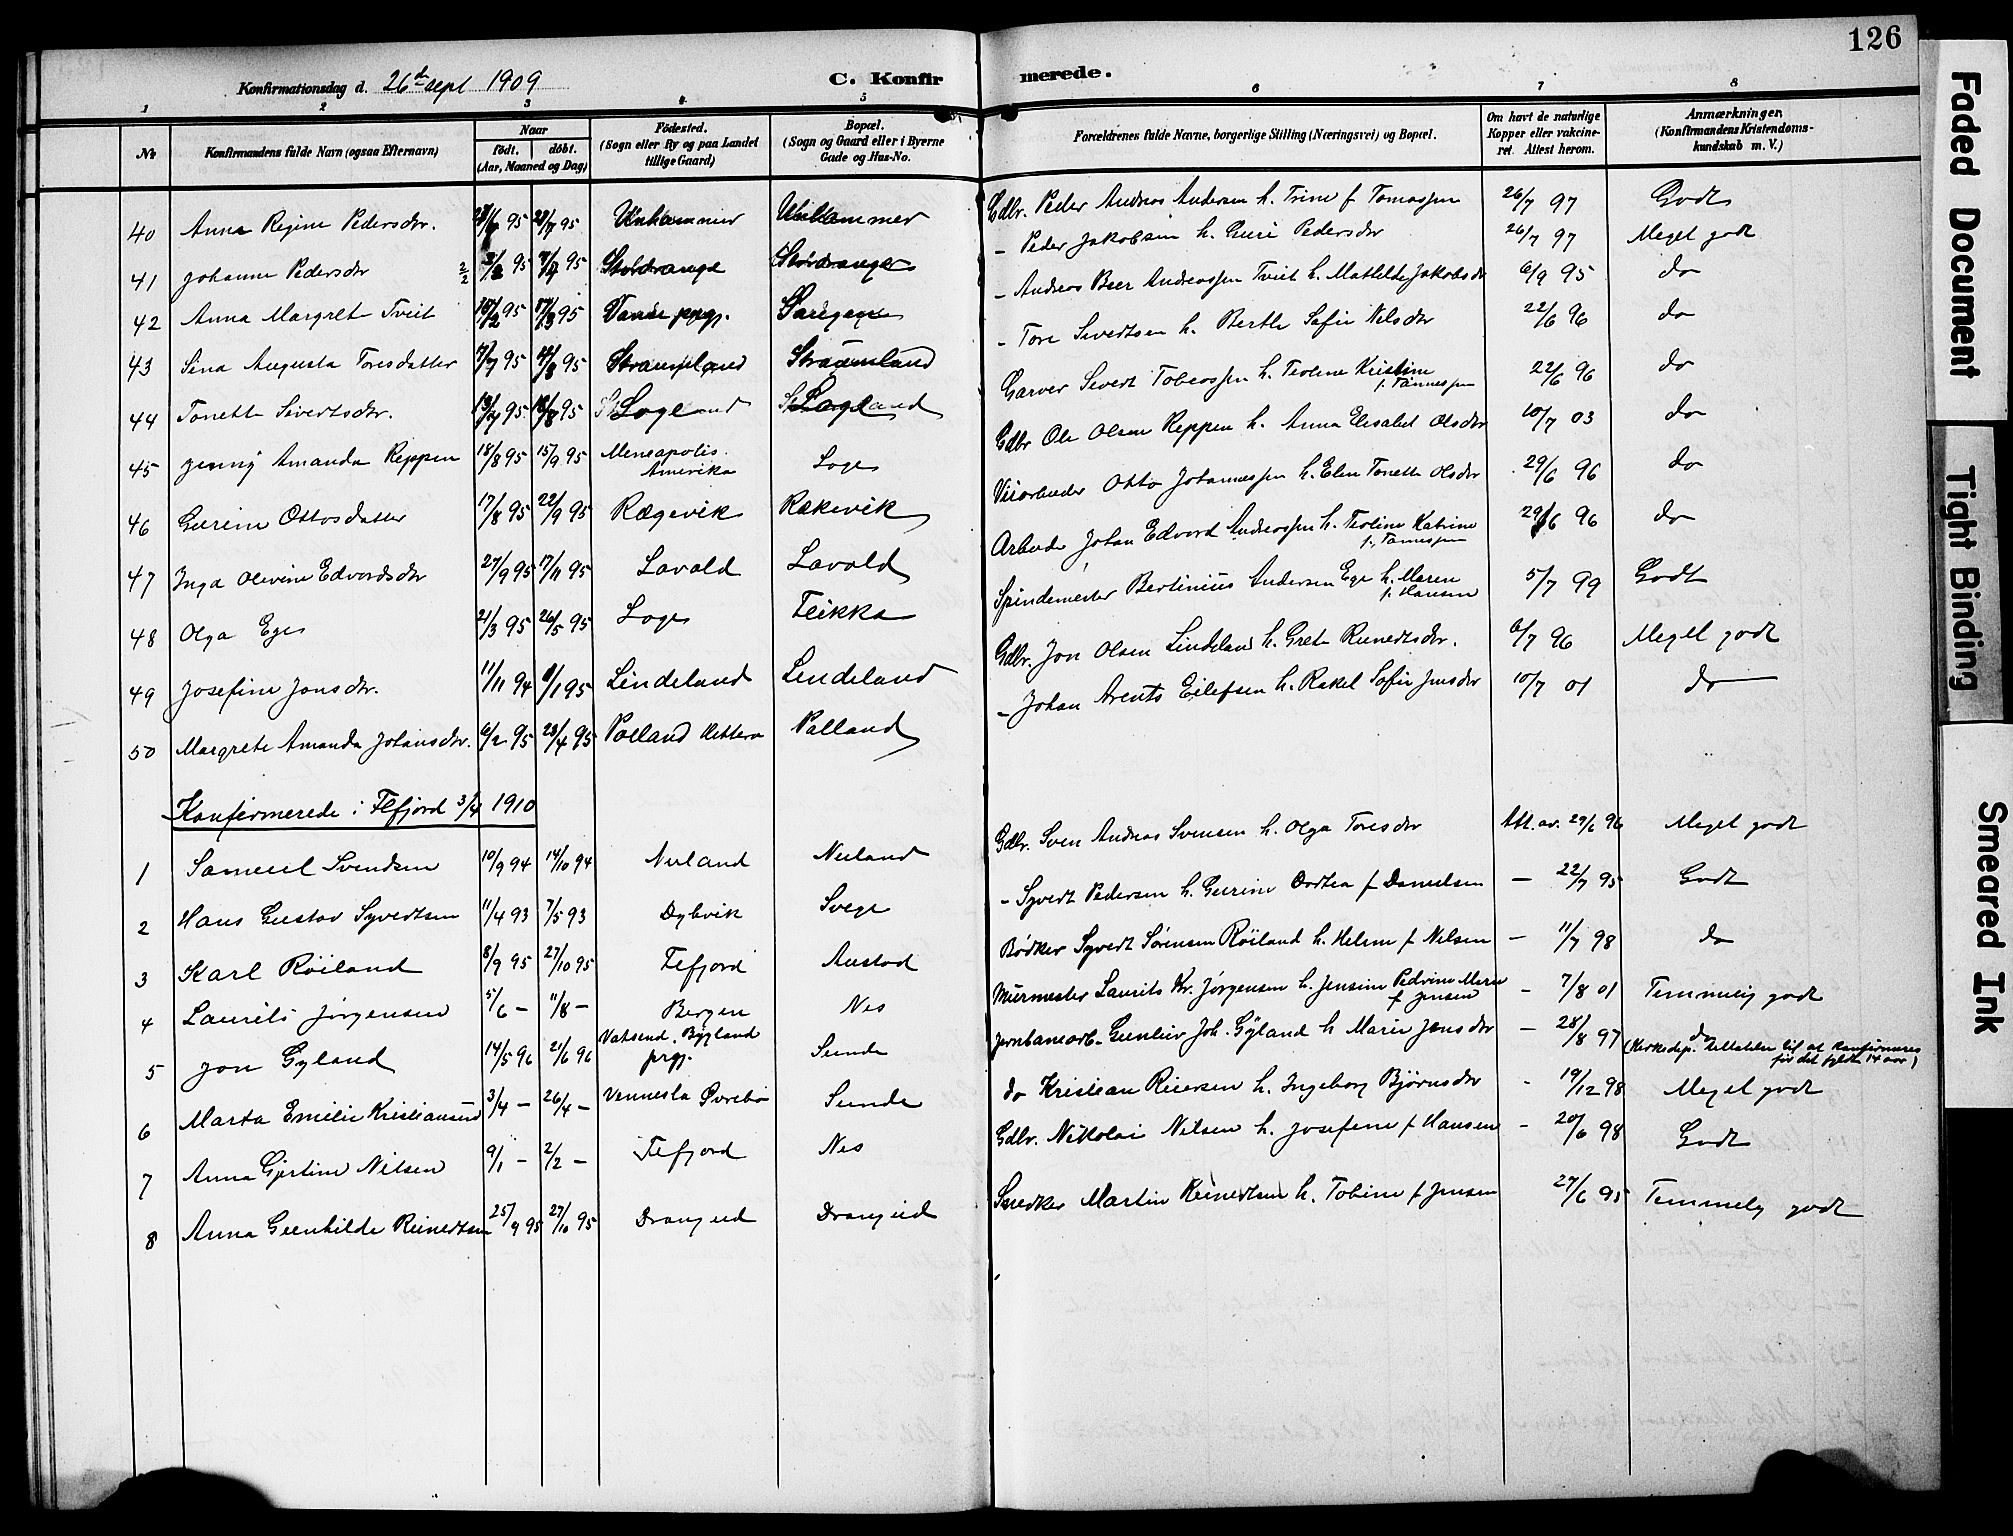 126
Konfirmationsdag d. 26de sept 1909
C. Konfirmerede.
1 2 3 4 5 6 7 8
No
Konfirmandens fulde Navn (ogsaa Efternavn)
Naar født. døbt. (Aar, Maaned og Dag)
Fødested. (Sogn eller By og paa Landet tillige Gaard)
Bopæl. (Sogn og Gaard eller i Byerne Gade og Hus-No.
Forældrenes fulde Navne, borgerlige Stilling (Næringsvei) og Bopæl.
Om havt de naturlige Kopper eller vakcineret. Attest herom.
Anmærkninger, (Konfirmandens Kristendomskundskab m. V.)
40 Anna Regine Pedersdtr. 95 28/7 95 Unhammer Unhammer Gdbr. Peder Andreas Andersen h. Trine f Tomassen 26/7 97 Godt
41 Johanne Pedersdtr 2/2 95 95 Stordrange Stordrange - Peder Jakobsen h. Guri Pedersdtr 26/7 97 Meget godt
42 Anna Margret Tveit 95 95 Vanse prgj. - Andreas Beer Andreassen Tveit h. Mathilde Jakobsdtr 6/9 95 do
43 Sina Augusta Toresdatter 95 95 Straumland Straumland - Tore Sivertsen h. Berthe Sofie Nilsdtr 22/6 96 do
44 Tonette Sivertsdtr. 95 95 Loge Loge Garver Sivert Tobiassen h. Teoline Kristine f. Tønnessen 22/6 96 do
45 Jenny Amanda Reppen 18/8 95 15/9 95 Meneapolis. Amerika Loge Gdbr Ole Olsen Reppen h. Anna Elisabet Olsdtr 10/7 03 do
46 Gurine Ottosdatter 17/8 95 22/9 95 Rægevik Rækevik Veiarbeider Otto Johannessen h. Elen Tonette Olsdtr 29/6 96 do
47 Inga Olivine Edvardsdtr 27/9 95 17/11 95 Lavold Lavold Arbeider Johan Edvard Andreassen h. Teoline Katrine f. Tønnessen 29/6 96 do
48 Olga Ege 21/3 95 26/5 95 Loge Feikka Spindemester Bertinius Andersen Ege h. Maren f. Hansen 5/7 99 Godt
49 Josefine Jonsdtr. 11/11 94 6/1 95 Lindeland Lindeland Gdbr. Jon Olsen Lindeland h. Grete Reinertsdtr. 6/7 96 Meget godt
50 Margrete Amanda Johansdtr. 6/2 95 28/4 95 Pælland Hitterø Pælland - Johan Arents Eilefsen h. Rakel Sofie Jensdtr 10/7 01 do
Konfirmerede i Flefjord 3/4 1910
1 Samuel Svendsen 10/9 94 14/10 94 Nuland Nuland Gdbr. Sven Andreas Svensen h. Olga Toresdtr Att. av. 29/6 96 Meget godt
2 Hans Gustav Syvertsen 11/4 93 7/5 93 Dybvik Svege - Syvert Pedersen h. Gurine Dortea f Danielsen - 22/7 95 Godt
3 Karl Røiland 8/9 95 27/10 95 Fefjord Austad Bødker Syvert Sørensen Røiland h. Helene f Nilsen - 11/7 98 do
4 Laurits Jørgensen 5/6 - 11/8 - Bergen Nes Murmester Laurits Kr. Jørgensen h. Jensine Pedrine Marie f Jensen - 7/8 01 Temmelig godt
5 Jon Gyland 14/5 96 21/6 96 Vatsend, Bygland prgj. Sunde Jernbanearb. Gunleiv Joh. Gyland h Marie Jensdtr - 28/8 97 do (Kirkedep. tilladelse til at konfirmeres før det fyldte 14 aar)
6 Marta Emilie Kristiansen 3/4 - 26/4 - Vennesla Øvrebø Sunde do Kristian Reiersen h. Ingeborg Bjørnsdtr - 19/12 98 Meget godt
7 Anna Gjertine Nilsen 9/1 - 2/2 - Fefjord Nes Gdbr. Nikolai Nilsen h. Josefine f Hansen - 20/6 98 Godt
8 Anna Gunhilde Reinertsen 25/9 95 27/10 95 Drangeid Drangeid Snedker Martin Reinertsen h. Tobine f Jensen 27/6 95 Temmelig godt
Faded Document
Tight Binding
Smeared Ink